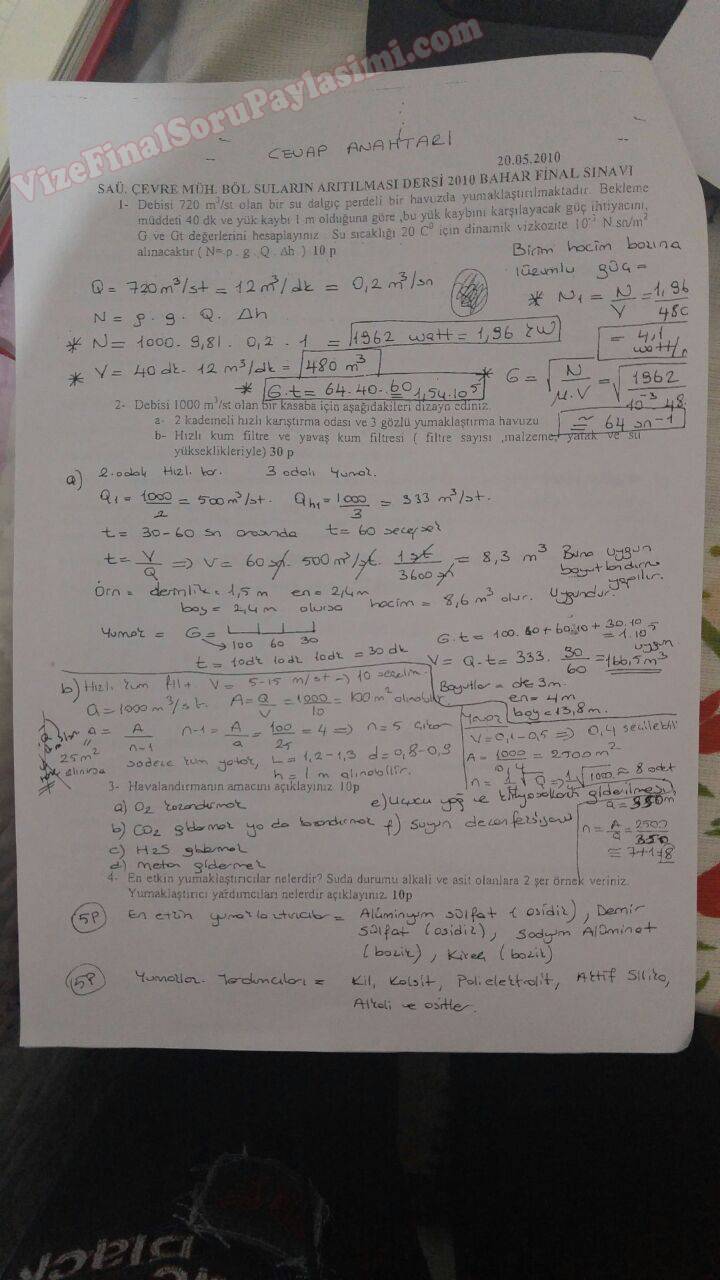 VizeFinalSoruPaylasimi.com
CEVAP ANAHTARI
20.05.2010
SAÜ. ÇEVRE MÜH. BÖL SULARIN ARITILMASI DERSİ 2010 BAHAR FİNAL SINAVI
1- Debisi 720 m³/st olan bir su dalgıç perdeli bir havuzda yumaklaştırılmaktadır. Bekleme
müddeti 40 dk ve yük kaybı 1 m olduğuna göre ,bu yük kaybını karşılayacak güç ihtiyacını,
G ve Gt değerlerini hesaplayınız . Su sıcaklığı 20 C⁰ için dinamik vizkozite 10⁻³ N.sn/m²
alınacaktır ( N= ρ . g . Q . Δh ) 10 p
Birim hacim bazına
lüzumlu güç =
Q = 720 m³/st = 12 m³/dk = 0,2 m³/sn
* N₁ = N/V = 1,96/480
N = ρ. g. Q. Δh
= 4,1 watt/
* N = 1000. 9,81. 0,2. 1 = 1962 watt = 1,96 kW
* V = 40 dk. 12 m³/dk = 480 m³
* G = √(N/μ.V) = √(1962/10⁻³.48
* G.t = 64.40.60 ≅ 1,54.10⁵
≅ 64 sn⁻¹
2- Debisi 1000 m³/st olan bir kasaba için aşağıdakileri dizayn ediniz.
a- 2 kademeli hızlı karıştırma odası ve 3 gözlü yumaklaştırma havuzu
b- Hızlı kum filtre ve yavaş kum filtresi ( filtre sayısı ,malzeme, yatak ve su
yükseklikleriyle) 30 p
a) 2.odalı Hızlı kar. 3 odalı Yumak.
Q₁ = 1000/2 = 500 m³/st. Qh₁ = 1000/3 = 333 m³/st.
t = 30-60 sn arasında t = 60 seçersek
t = V/Q ⇒ V = 60 sn. 500 m³/st. 1 st/3600 sn = 8,3 m³ Buna uygun
boyutlandırma
yapılır.
Örn = derinlik = 1,5 m en = 2,4 m
boy = 2,4 m olursa hacim = 8,6 m³ olur. Uygundur.
Yumak = G = 100 60 30
G.t = 100.10+60.10+30.10
= 1.10⁵
uygun
t = 10dk 10dk 10dk = 30 dk
V = Q.t = 333. 30/60 = 166,5 m³
Boyutlar = de 3m.
en = 4m
boy = 13,8 m.
b) Hızlı kum filt. V = 5-15 m/st ⇒ 10 seçelim
Q = 1000 m³/st. A = Q/V = 1000/10 = 100 m² alınabilir.
a = A/n-1 n-1 = A/a = 100/25 = 4 ⇒ n = 5 çıkar
25 m²
alınırsa
sadece kum yatak, L = 1,2-1,3 d = 0,8-0,9
h = 1 m alınabilir.
Yavaş
V = 0,1-0,5 ⇒ 0,4 seçilebilir
A = 1000/0,4 = 2500 m²
n = 1/4 √Q ⇒ 1/4 √1000 ≈ 8 adet
n = A/a = 2500/350
≅ 7+1=8
3- Havalandırmanın amacını açıklayınız 10p
a) O₂ kazandırmak
b) CO₂ gidermek ya da kazandırmak
c) H₂S gidermek
d) metan gidermek
e) Uçucu yağ ve kimyasalların giderilmesi
f) Suyun dezenfeksiyonu
4- En etkin yumaklaştırıcılar nelerdir? Suda durumu alkali ve asit olanlara 2 şer örnek veriniz.
Yumaklaştırıcı yardımcıları nelerdir açıklayınız. 10p
5P En etkin yumaklaştırıcılar = Alüminyum sülfat (asidik), Demir
sülfat (asidik), Sodyum Alüminat
(bazik), Kireç (bazik)
5P Yumaklaş. Yardımcıları = Kil, Kalsit, Polielektrolit, Aktif Silika,
Alkali ve asitler.